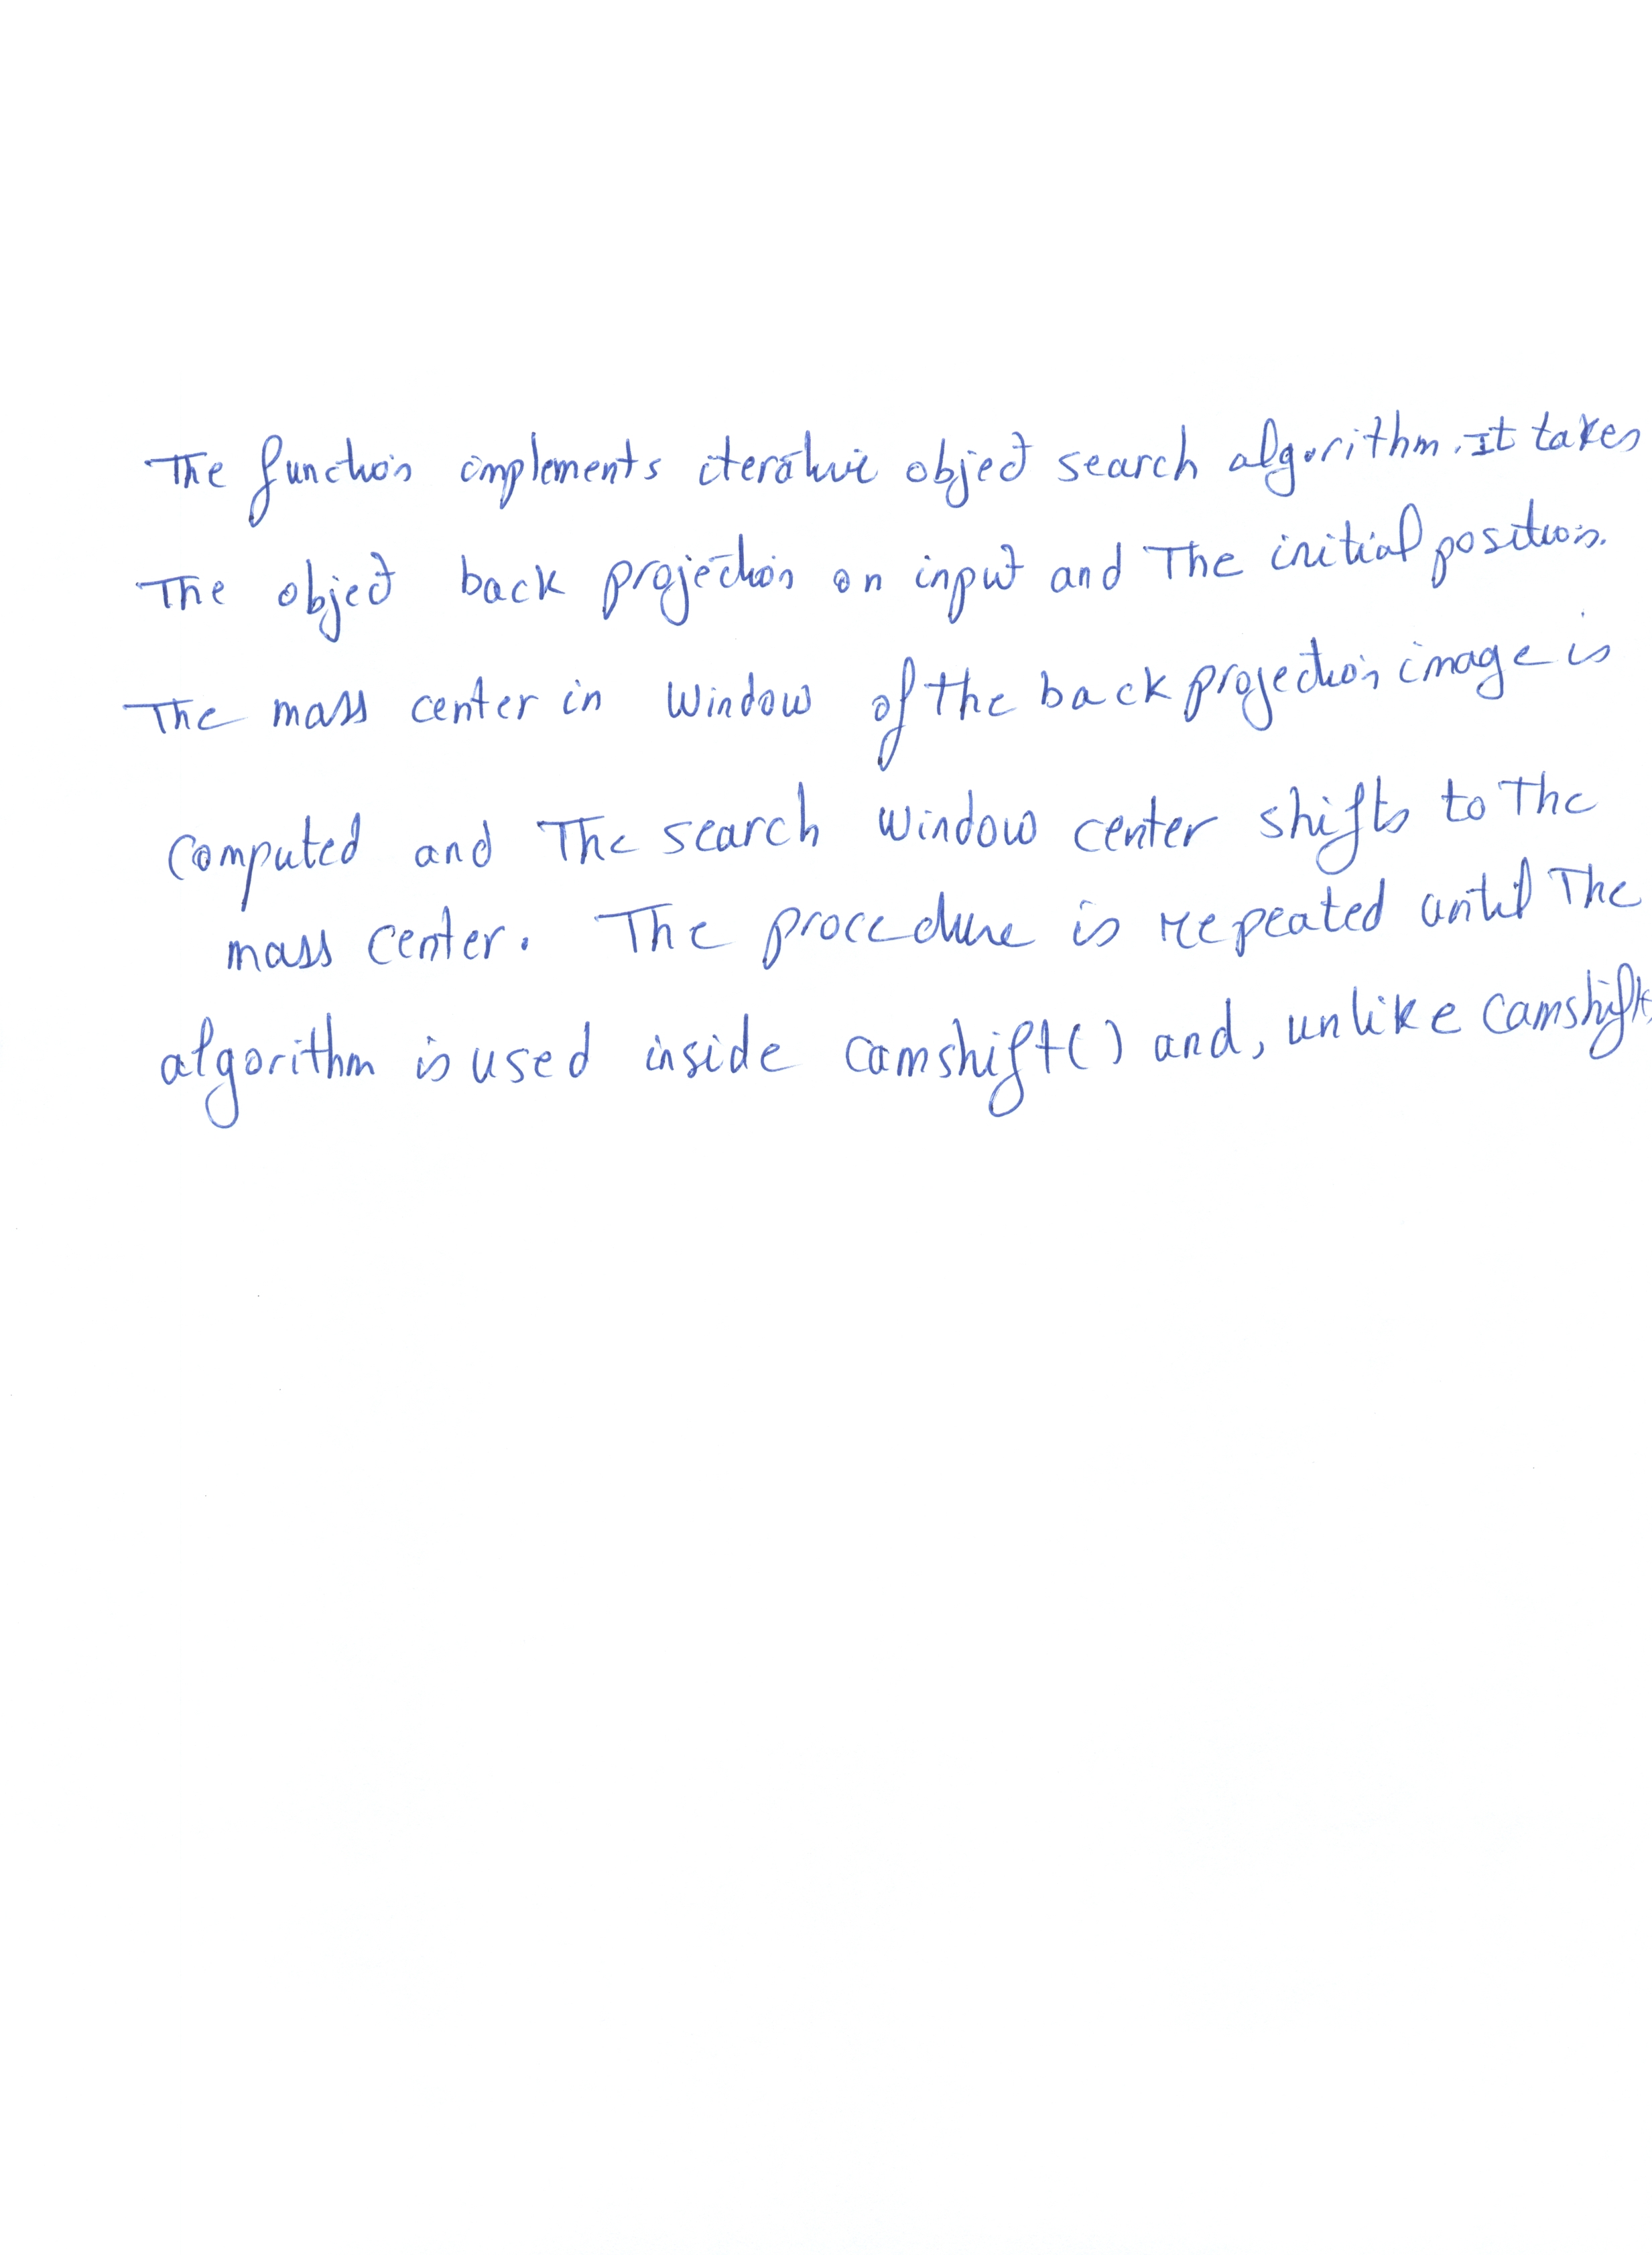 The function implements iterative object search algorithm. It takes
The object back projection on input and The initial position.
The mass center in window of the back projection image is
computed and The search window center shifts to The
mass center. The procedure is repeated until The
algorithm is used inside camshift() and, unlike camshift